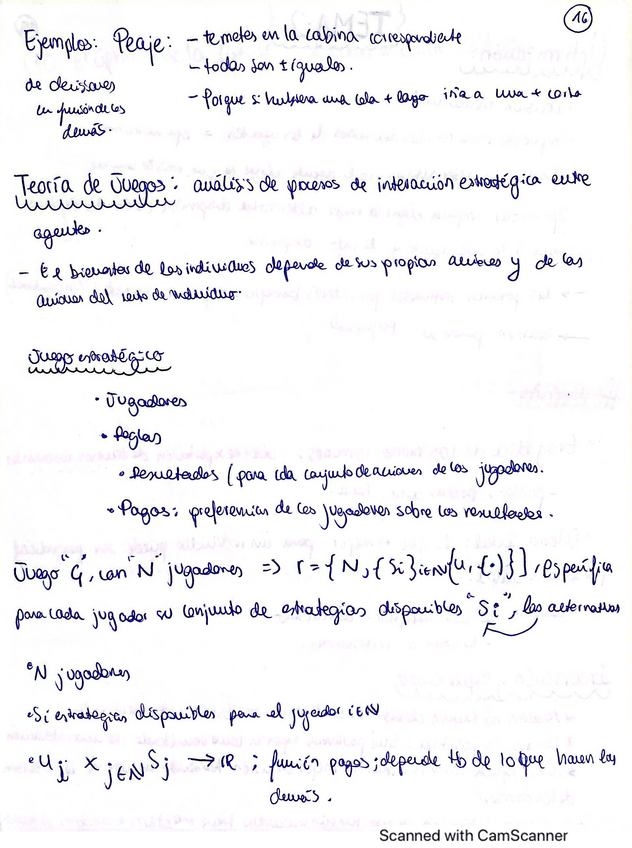 16
Ejemplos: Peaje: - te metes en la cabina correspondiente
de decisiones - todas son ± iguales.
en función de los - Porque si hubiera una cola + larga iría a una + corta
demás.
Teoría de Juegos: análisis de procesos de interacción estratégica entre
agentes.
- El bienestar de los individuos depende de sus propias acciones y de las
acciones del resto de individuo.
Juego estratégico
• Jugadores
• Reglas
• Resultados (para cda conjunto de acciones de los jugadores.
• Pagos: preferencias de los jugadores sobre los resultados.
Juego "G", con "N" jugadores => Γ = { N, {Si}i∈N {u, (·)}] , especifica
para cada jugador su conjunto de estrategias disponibles "Si", las alternativas
• N jugadores
• Si estrategias disponibles para el jugador i∈N
• Ui x j∈N Sj → R ; función pagos; depende tb de lo que hacen los
demás.
Scanned with CamScanner